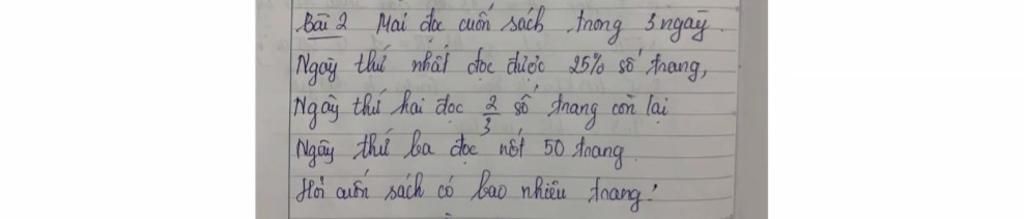 Bài 2 Mai đọc cuốn sách trong 3 ngày.
Ngày thứ nhất đọc được 25% số trang,
Ngày thứ hai đọc 2/3 số trang còn lại
Ngày thứ ba đọc nốt 50 trang.
Hỏi cuốn sách có bao nhiêu trang?